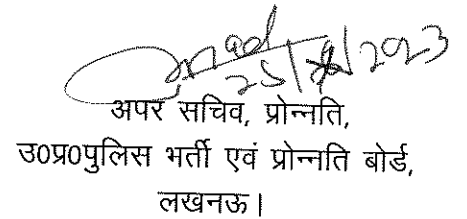 अपर सचिव, प्रोन्नति,
उ0प्र0पुलिस भर्ती एवं प्रोन्नति बोर्ड,
लखनऊ।